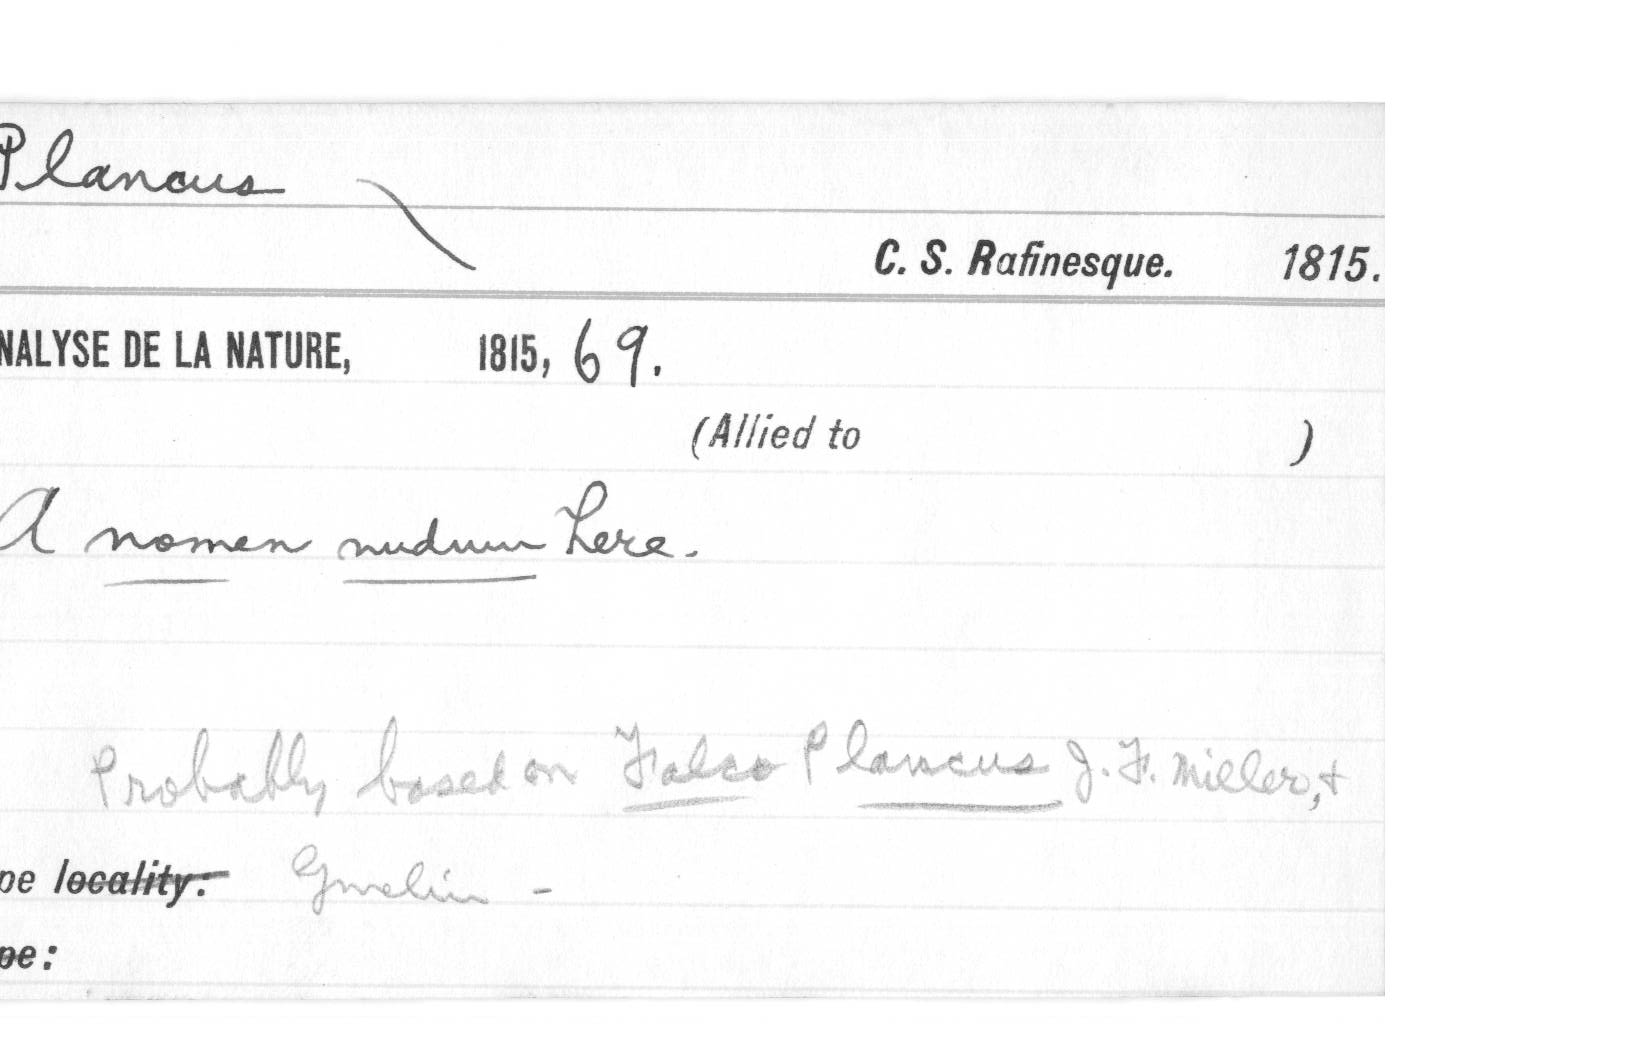 Plancus
C. S. Rafinesque. 1815.
NALYSE DE LA NATURE, 1815, 69.
(Allied to )
A nomen nudum here.
Probably based on Falco Plancus J. F. Miller, &
pe locality: Gmelin -
pe: